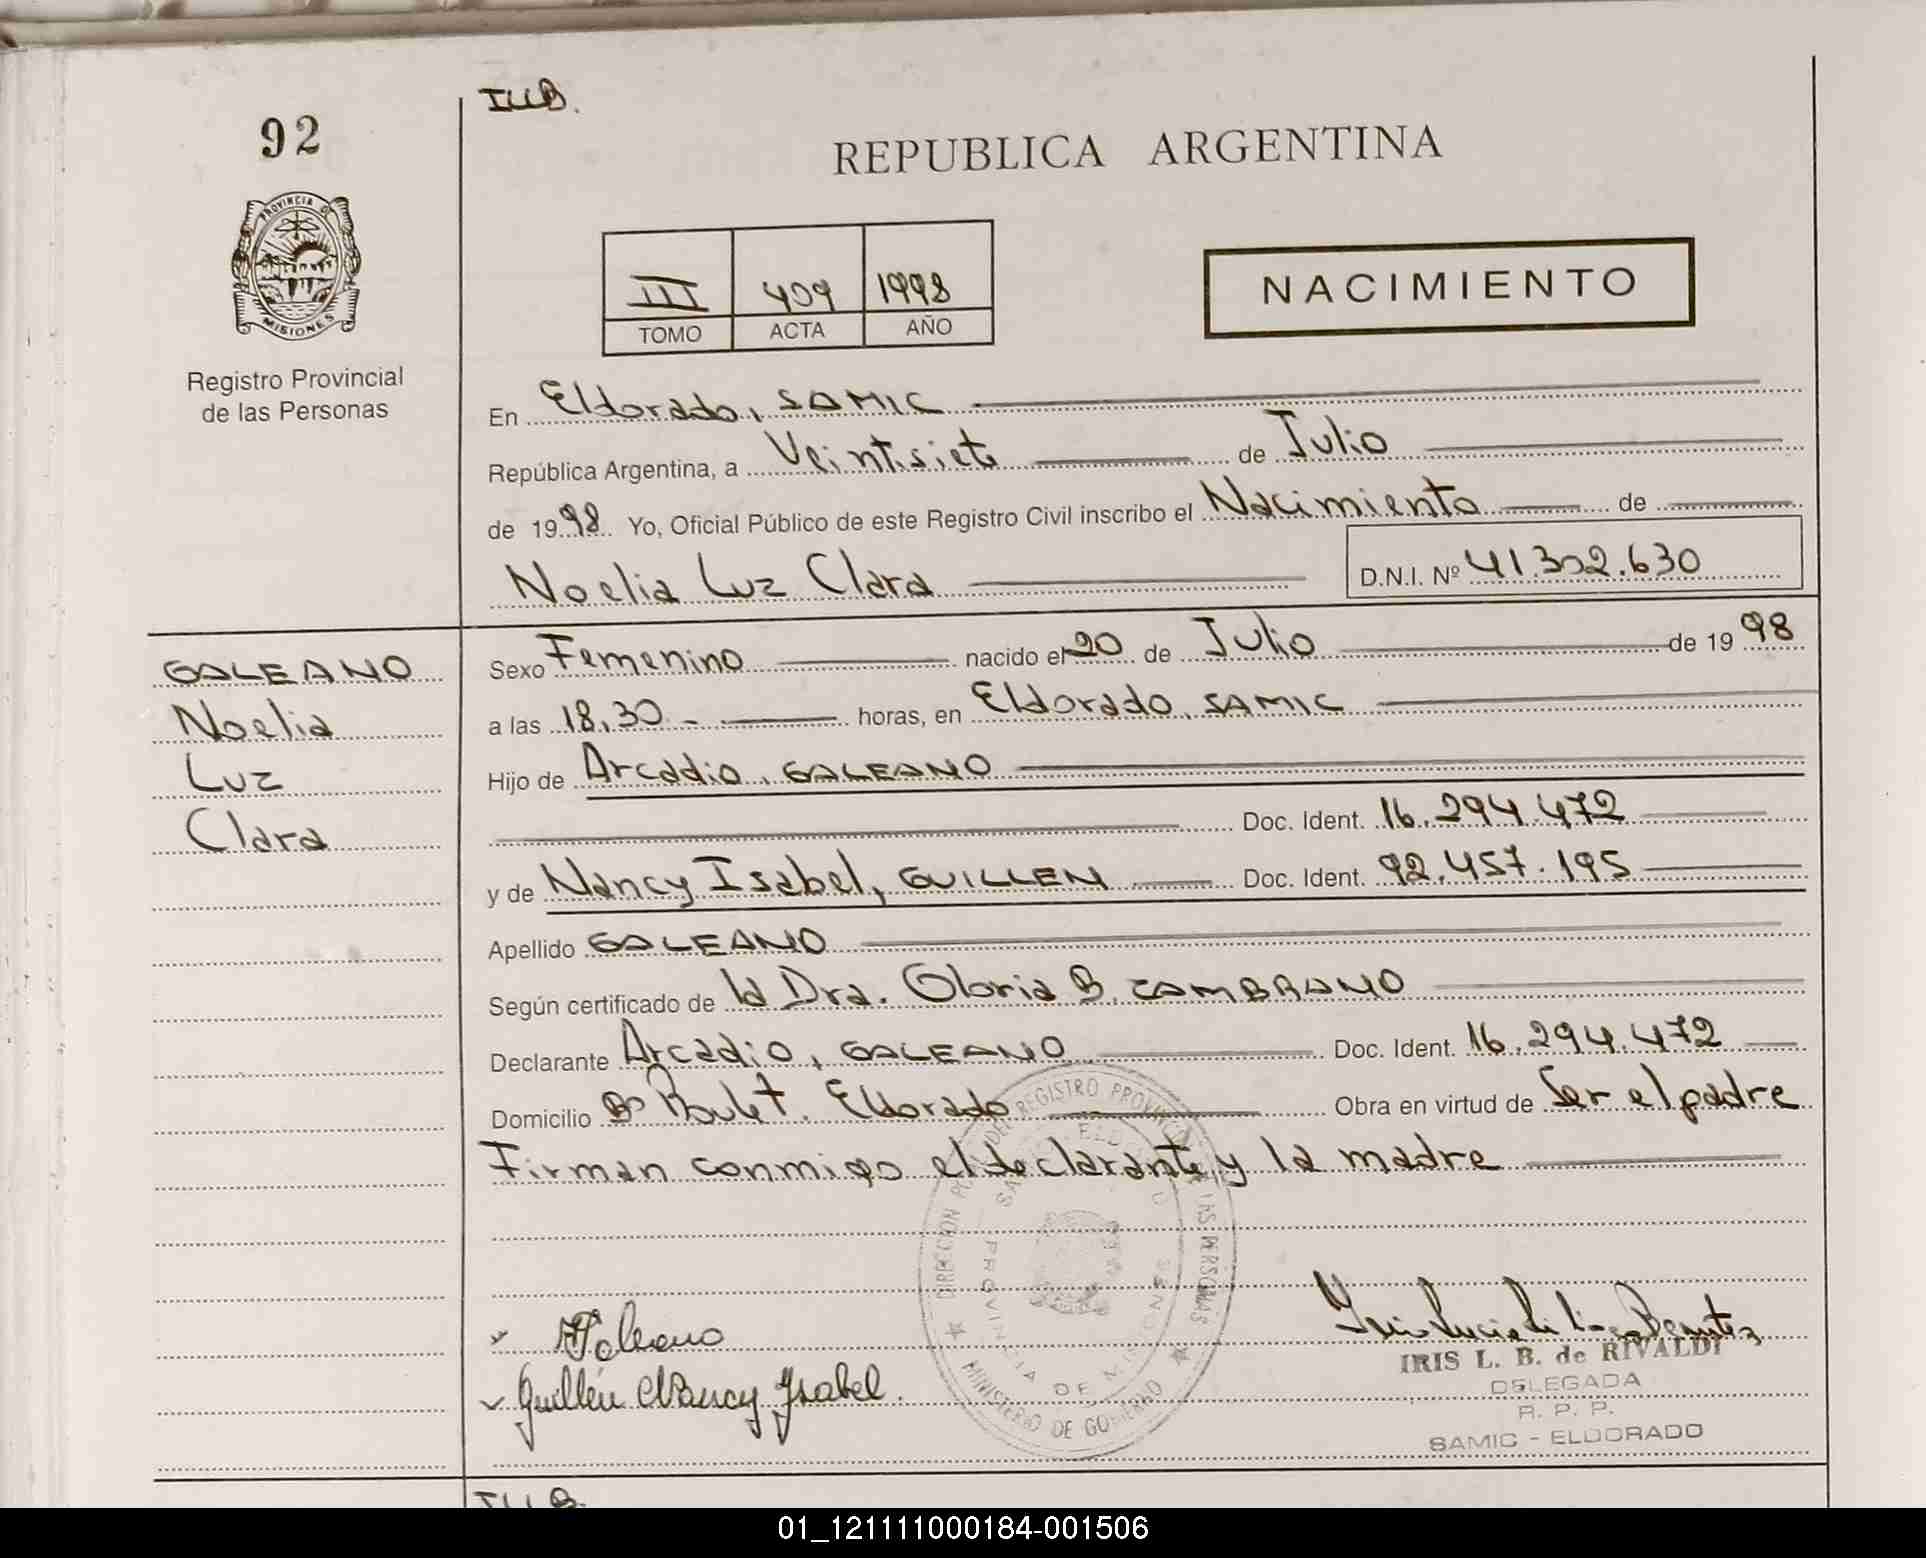 92
I.L.B.
REPUBLICA ARGENTINA
PROVINCIA DE
MISIONES
Registro Provincial
de las Personas
III 409 1998
TOMO ACTA AÑO
NACIMIENTO
En Eldorado, SAMIC
República Argentina, a Veintisiete de Julio
de 1998 Yo, Oficial Público de este Registro Civil inscribo el Nacimiento de
Noelia Luz Clara D.N.I. Nº 41.302.630
GALEANO
Noelia
Luz
Clara
Sexo Femenino nacido el 20 de Julio de 1998
a las 18,30 horas, en Eldorado, SAMIC
Hijo de Arcadio, GALEANO
Doc. Ident. 16.294.472
y de Nancy Isabel, GUILLEN Doc. Ident. 92.457.195
Apellido GALEANO
Según certificado de la Dra. Gloria B. ZAMBRANO
Declarante Arcadio, GALEANO Doc. Ident. 16.294.472
Domicilio Bº Roulet. Eldorado Obra en virtud de Ser el padre
Firman conmigo el declarante y la madre
Galeano
Guillén Nancy Ysabel.
REGISTRO PROVINCIAL DE LAS PERSONAS
PROVINCIA DE MISIONES
MINISTERIO DE GOBIERNO
IRIS L. B. de RIVALDI
DELEGADA
R. P. P.
SAMIC - ELDORADO
I.L.B.
01_121111000184-001506